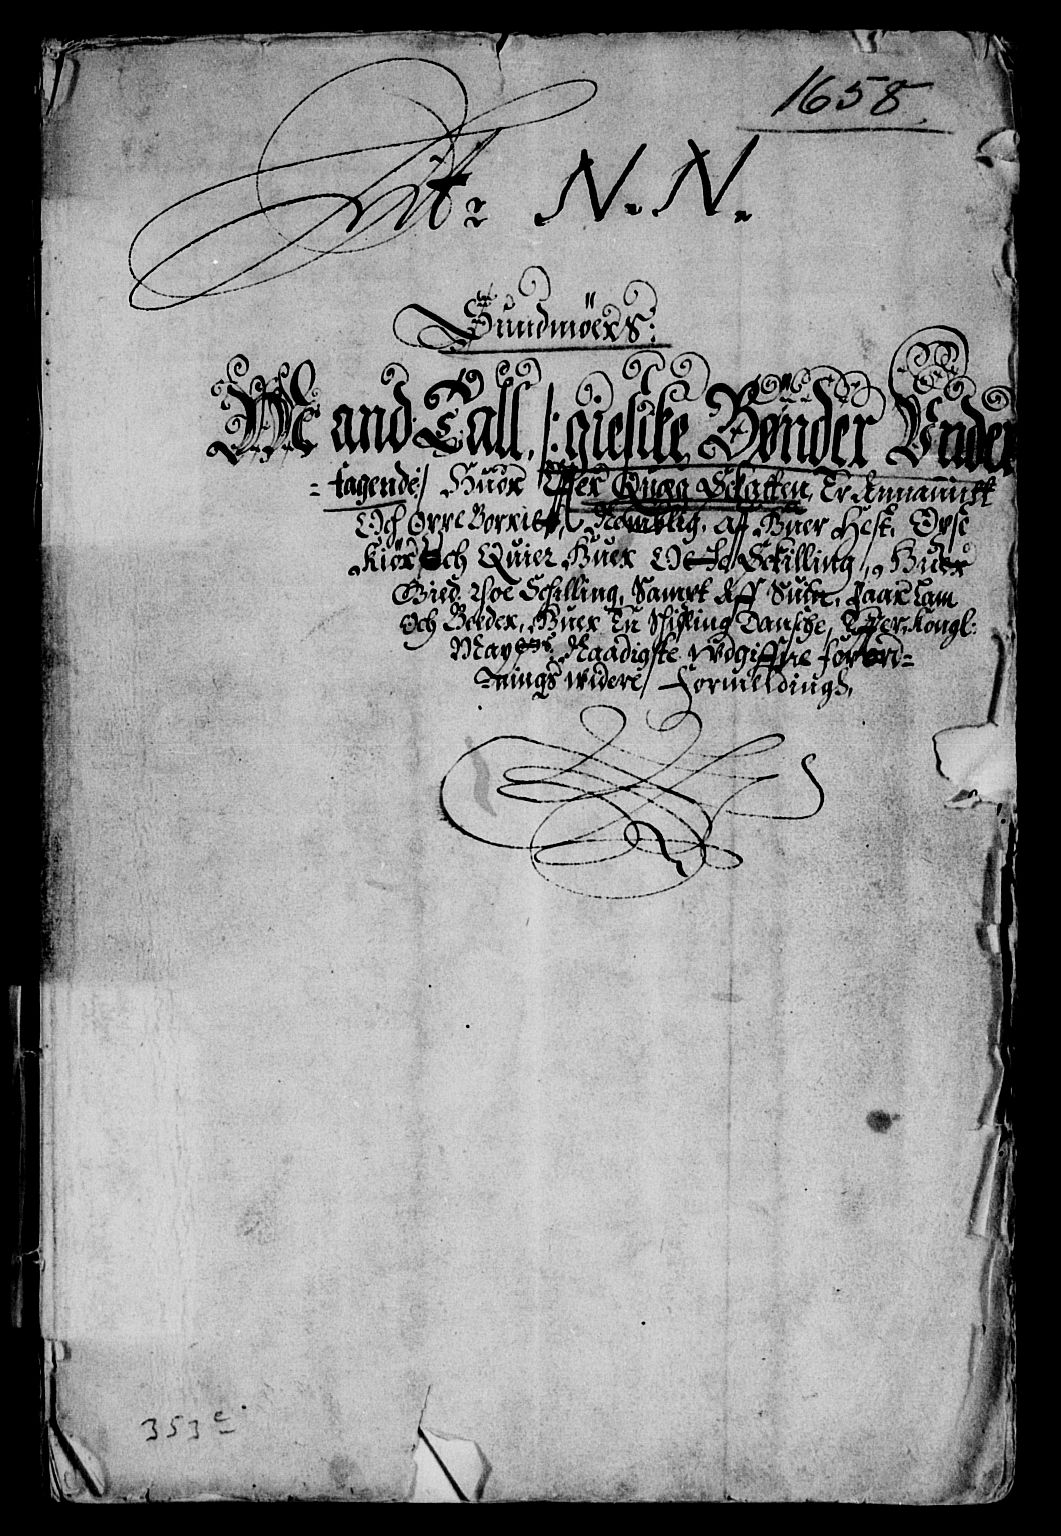 1658.
Lit: N. N.
Sundmöers:
Mand Tall, /: gieficke Bønder Under
=tagende/ Huor Effter Quæg Schatten, Er Annammitt
Och Oppe Borrit, Nemblig, Aff Huer Hest, Oxse
Kiør Och Quier Huer Otte Schilling, Huer
Gied Toe Schilling, Sampt Aff Suin, Faar Lam
Och Beeder, Huer En Schilling Dansche, Effter Kongl:
May: Naadigste Udgiffne forord=
=nings widere/ Formeldingh,
353 e.